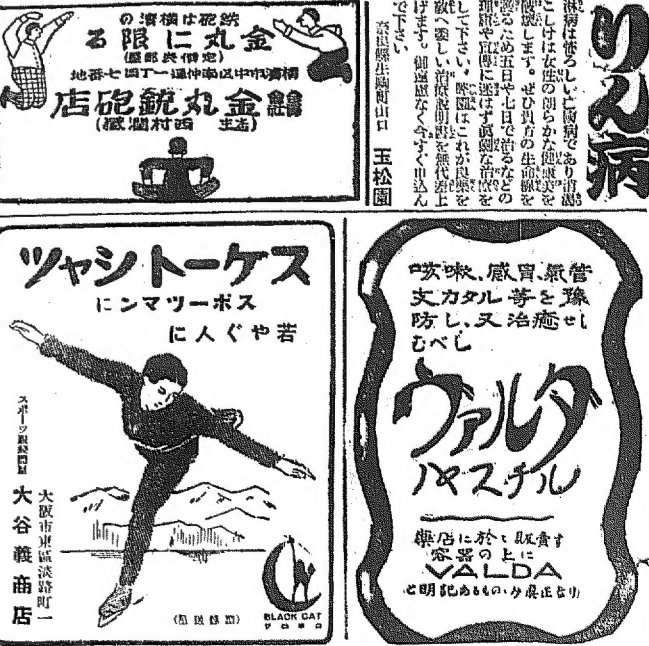 銃砲は横濱の
金丸に限る
(定價表郵呈)
横濱市中区南仲通一丁四七番地
金丸銃砲店
(店主 西村潤蔵)
りん病
淋病は怖ろしい亡國病であり消渇
こしけは女性の朗らかな健康美を
破壊します。ぜひ貴方の生命線を
護るため五日や七日で治るなどの
宣傳に迷はず眞劍な治療を
して下さい。弊園はこれが良藥を
敎へ委しい治療説明書を無代差上
げます。御遠慮なく今すぐ申込ん
で下さい
奈良縣生駒町山口 玉松園
スケートシャツ
スポーツマンに
若やぐ人に
スポーツ服装問屋
大阪市東區淡路町一
大谷義商店
BLACK CAT
クロネコ
咳嗽、感冒、氣管
支カタル等を豫
防し、又治癒せし
むべし
ヴァルダ
パスチル
藥店に於て販賣す
容器の上に
VALDA
と明記あるもののみ眞正なり